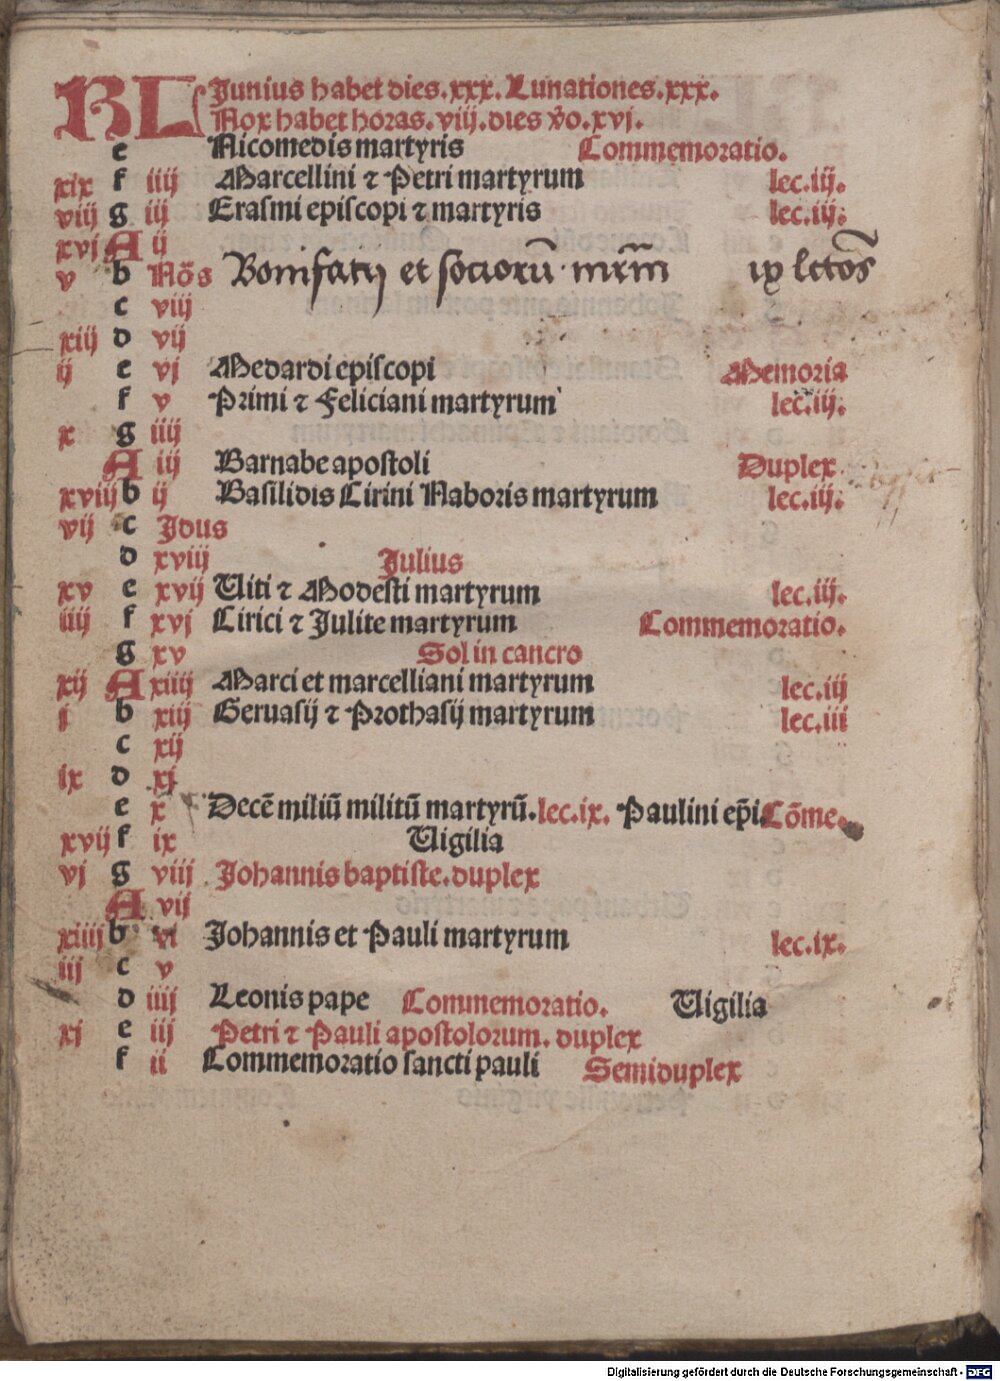 KL Junius habet dies.xxx. Lunationes.xxx.
Nox habet horas.viij.dies v̄o.xvj.
e Nicomedis martyris Commemoratio.
xix f iiij Marcellini ⁊ Petri martyrum lec.iij.
viij g iij Erasmi episcopi ⁊ martyris lec.iij.
xvj A ij
v b Nōs Bonifatij et socioru̅ mr̅m ix lctōs
c viij
xiij d vij
ij e vj Medardi episcopi Memoria
f v Primi ⁊ Feliciani martyrum lec.iij.
x g iiij
A iij Barnabe apostoli Duplex
xviij b ij Basilidis Cirini Naboris martyrum lec.iij.
vij c Idus
d xviij Julius
xv e xvij Uiti ⁊ Modesti martyrum lec.iij.
iiij f xvj Cirici ⁊ Julite martyrum Commemoratio.
g xv Sol in cancro
xij A xiiij Marci et marcelliani martyrum lec.iij
j b xiij Geruasij ⁊ Prothasij martyrum lec.iii
c xij
ix d xj
e x Decē miliū militū martyrū.lec.ix. Paulini ep̄i Cōme.
xvij f ix Uigilia
vj g viij Johannis baptiste.duplex
A vij
xiiij b vi Johannis et Pauli martyrum lec.ix.
iij c v
d iiij Leonis pape Commemoratio. Uigilia
xj e iij Petri ⁊ Pauli apostolorum. duplex
f ii Commemoratio sancti pauli Semiduplex
Digitalisierung gefördert durch die Deutsche Forschungsgemeinschaft - DFG